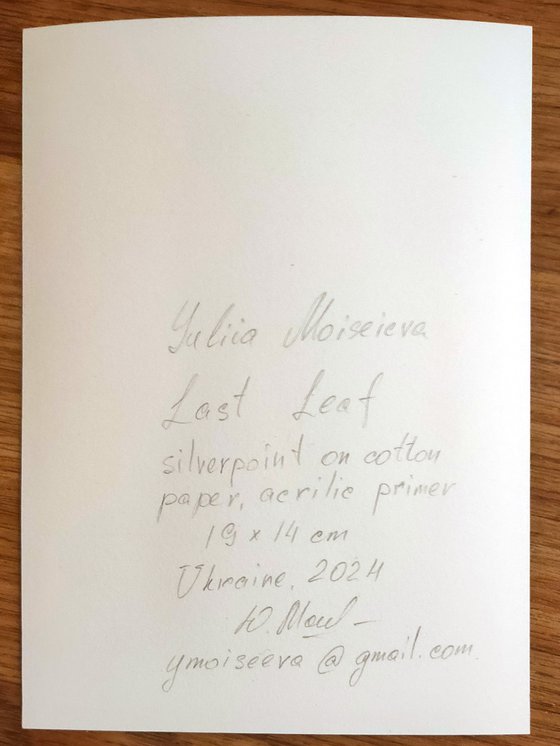 Yuliia Moiseieva
Last Leaf
silverpoint on cotton
paper, acrilic primer
19 x 14 cm
Ukraine, 2024
ymoiseeva @ gmail.com